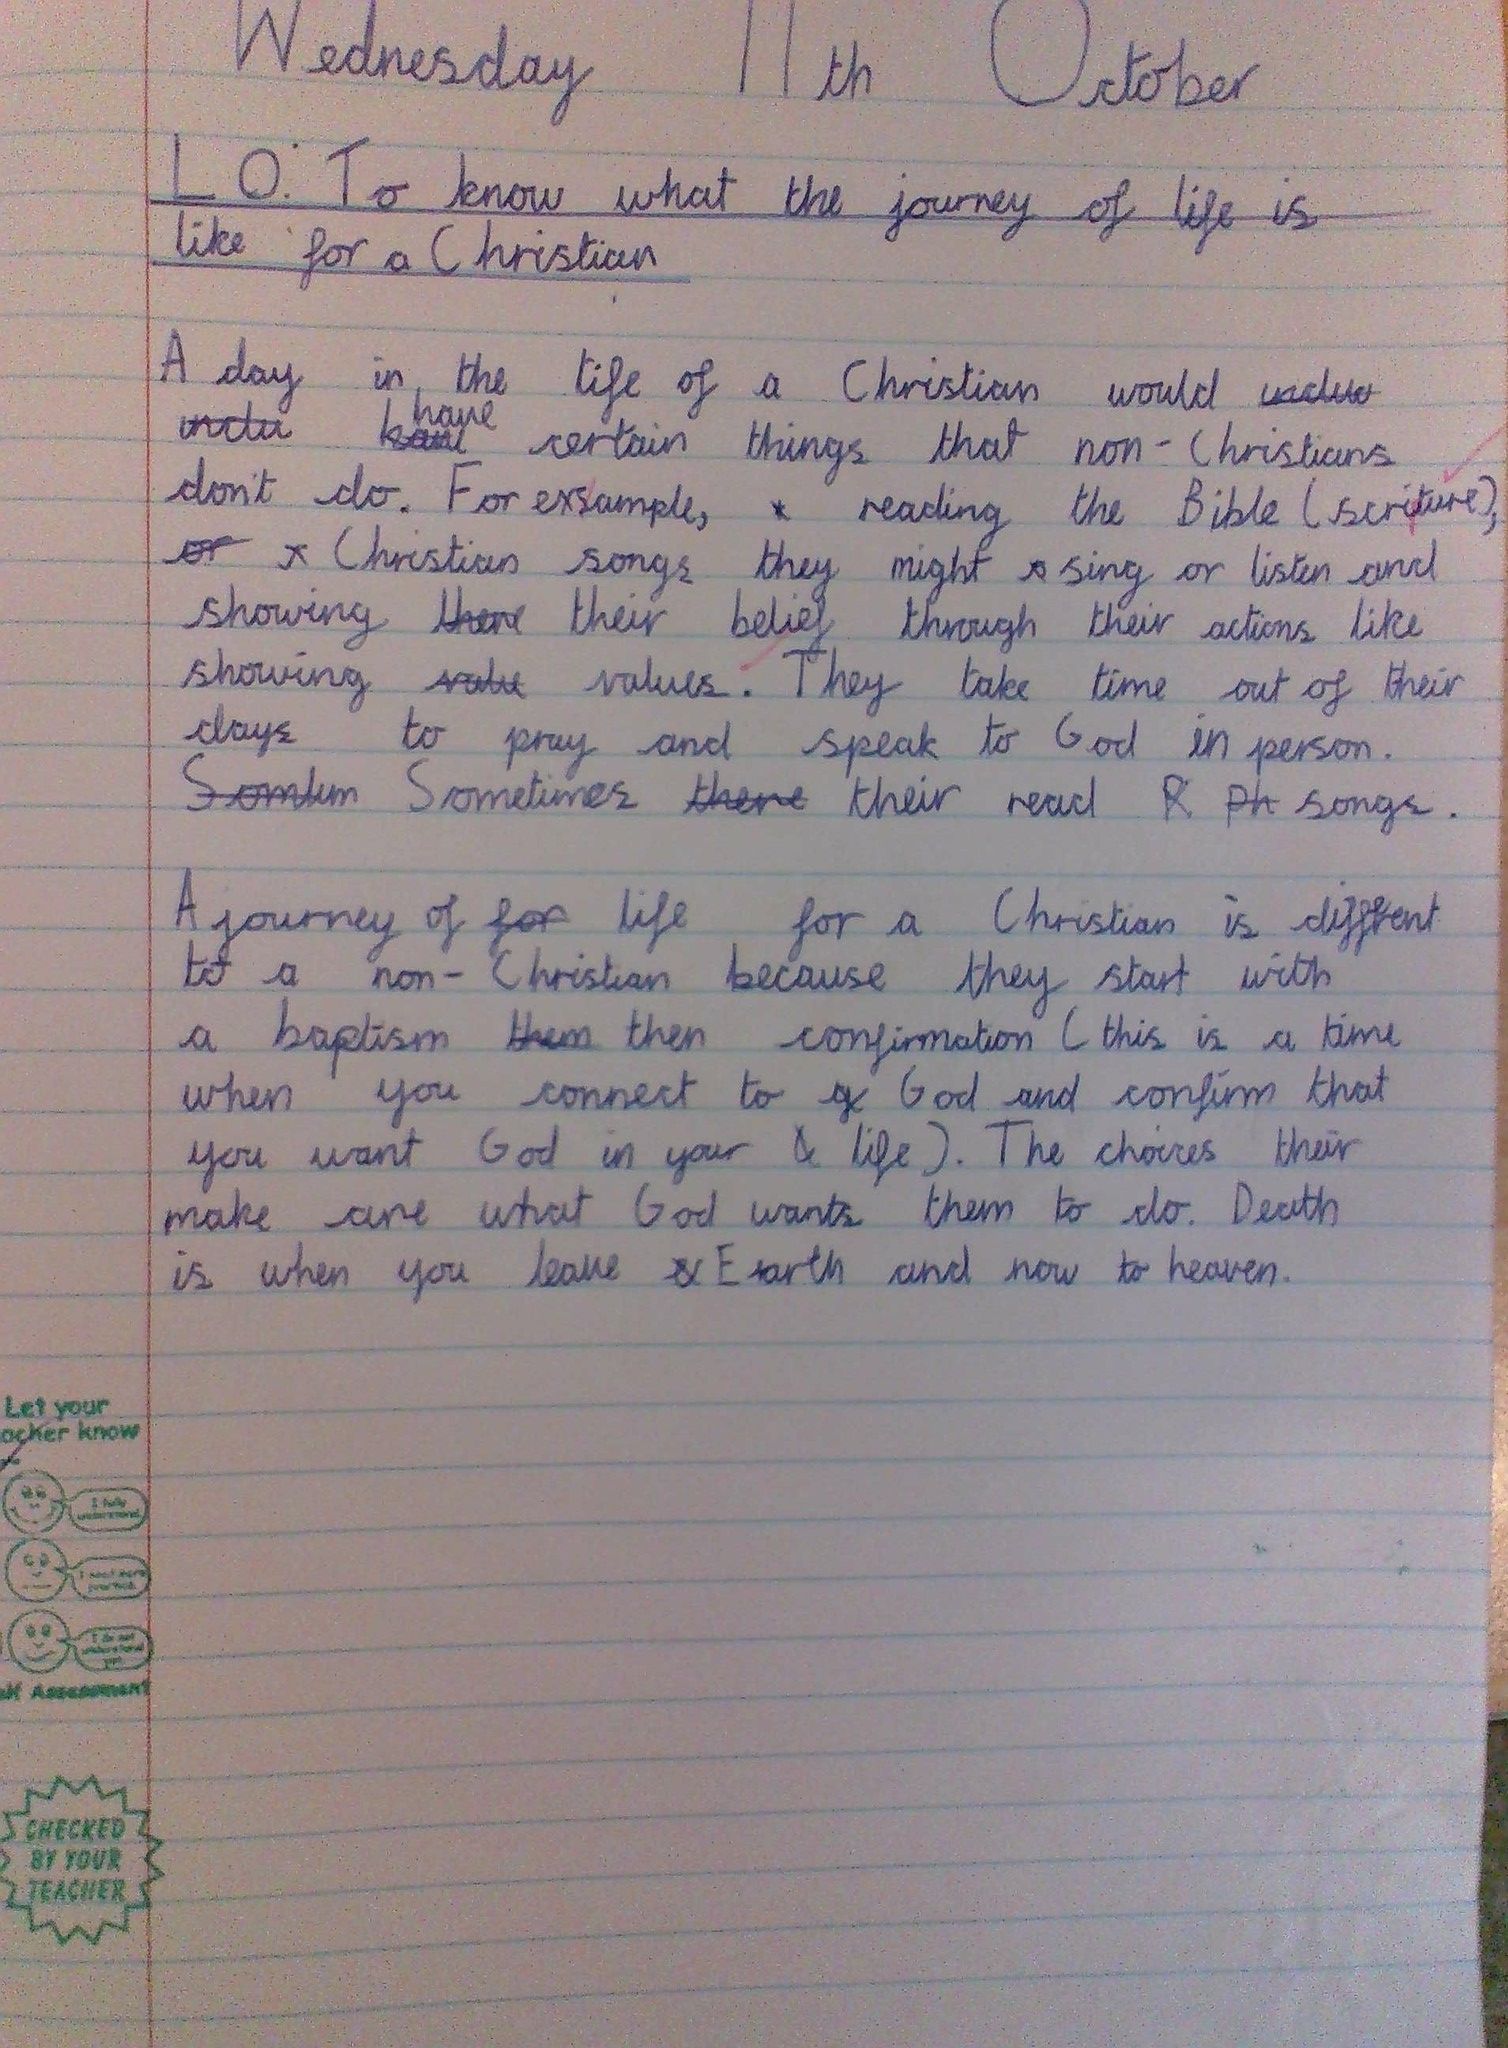 Wednesday 11th October
LO: To know what the journey of life is
like for a Christian
A day in the life of a Christian would
have certain things that non-Christians
don't do. For example, reading the Bible (scriture),
or Christian songs they might sing or listen and
showing there their belief through their actions like
showing value values. They take time out of their
days to pray and speak to God in person.
Somtim Sometimes there their read R Ph songs.
A journey of for life for a Christian is diffrent
to a non-Christian because they start with
a baptism them then confirmation (this is a time
when you connect to g God and confirm that
you want God in your life). The choices their
make are what God wants them to do. Death
is when you leave Earth and now to heaven.
Let your
know
I fully
understand
I do not
understand
yet
Assessment
CHECKED
BY YOUR
TEACHER